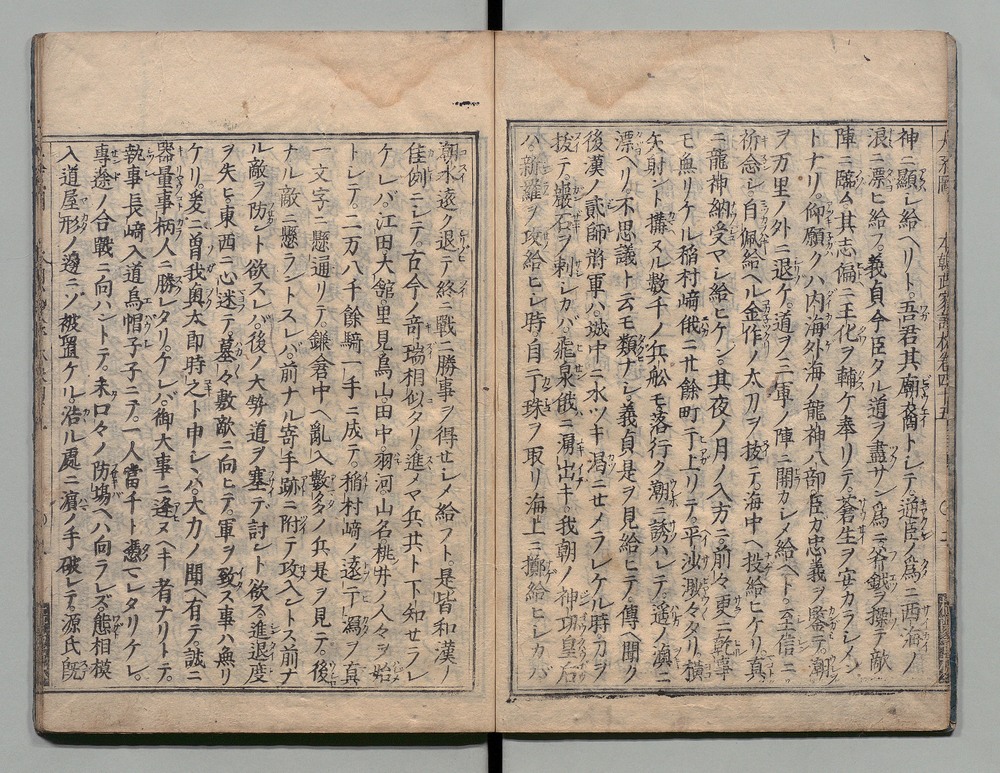 神ニ顯レ給ヘリト。吾君其廟裔トシテ。逆臣ノ爲ニ西海ノ
浪ニ漂ヒ給フ。義貞今臣タル道ヲ盡サン爲ニ斧鉞ヲ操テ敵
陣ニ臨ム其志偏ニ王化ヲ輔ケ奉リテ。蒼生ヲ安カラシメン
トナリ。仰願クハ内海外海ノ龍神八部臣カ忠義ヲ鑒テ。潮
ヲ万里ノ外ニ退ケ。道ヲ三軍ノ陣ニ開カシメ給ヘト。至信ニ
祈念シ自佩給ヘル金作ノ太刀ヲ抜テ。海中ヘ投給ヒケリ。真
ニ龍神納受マシ給ヒケン。其夜ノ月ノ入方ニ。前々更ニ乾事
モ無リケル稲村﨑俄ニ廿餘町干上リテ。平沙渺々タリ横
矢射ント搆スル數千ノ兵舩モ落行ク潮ニ誘ハレテ。遥ノ澳ニ
漂ヘリ。不思議ト云モ類ナシ。義貞是ヲ見給ヒテ。傳ヘ聞ク
後漢ノ貳師將軍ハ。城中ニ水ツキ渇ニセメラレケル時刀ヲ
拔テ。巖石ヲ刺シカバ。飛泉俄ニ湯出キ。我朝ノ神功皇后
ハ。新羅ヲ攻給ヒシ時。自干珠ヲ取リ海上ニ擲給ヒシカバ
潮水遠ク退テ終ニ戰ニ勝事ヲ得セシメ給フト。是皆和漢ノ
佳例ニシテ。古今ノ竒瑞相似タリ進メヤ兵共ト下知セラレ
ケレバ。江田大舘。里見鳥山。田中羽河。山名桃井ノ人々ヲ始
トシテ。二万八千餘騎一手ニ成テ。稲村﨑ノ遠干潟ヲ真
一文字ニ懸通リテ。鎌倉中ヘ亂入數多ノ兵是ヲ見テ。後
ナル敵ニ懸ラントスレバ。前ナル寄手跡ニ附テ攻入ントス前ナ
ル敵ヲ防ント欲スレバ。後ノ大勢道ヲ塞テ討レト欲ス進退度
ヲ失ヒ。東西ニ心迷テ墓々敷敵ニ向ヒテ。軍ヲ致ス事ハ無リ
ケリ。爰ニ曽我奥太郎時之ト申シハ。大力ノ聞ヘ有テ誠ニ
器量事柄人ニ勝レタリ。ケレバ。御大事ニ逢ヌヘキ者ナリトテ。
執事長﨑入道烏帽子子ニテ。一人當千ト憑マレタリケレ。
專途ノ合戰ニ向ハントテ。未口々ノ防塲ヘハ向ラレズ態相模
入道屋形ノ邊ニゾ被置ケル。浩ル處ニ濵ノ手破レテ。源氏既